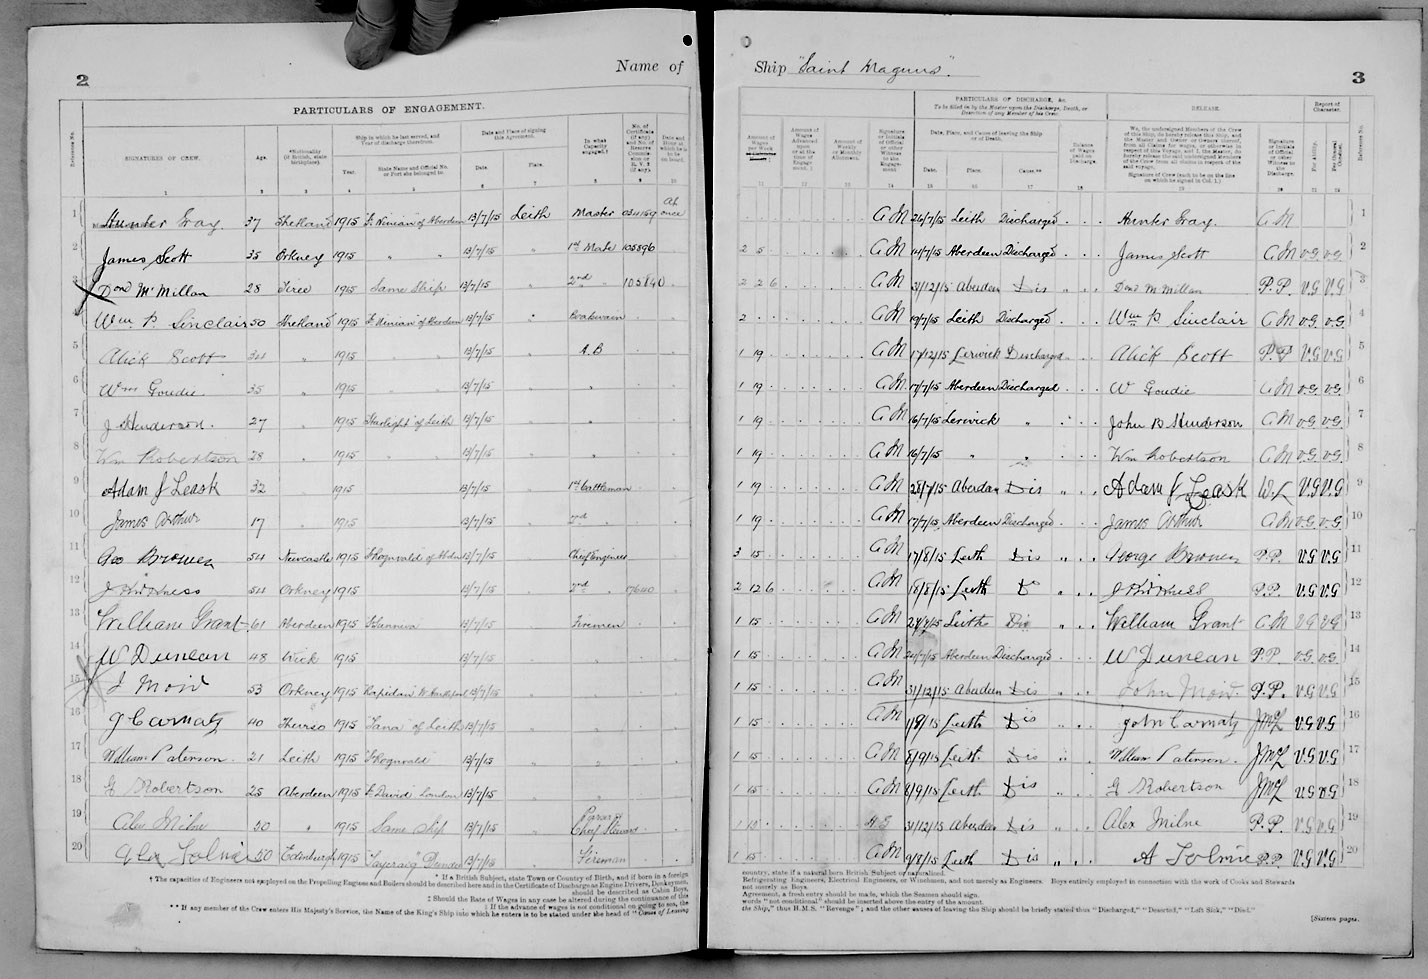 2
Name of
Ship "Saint Magnus".
3
PARTICULARS OF ENGAGEMENT.
PARTICULARS OF DISCHARGE, &c.
To be filled in by the Master upon the Discharge, Death, or Desertion of any Member of his Crew.
RELEASE.
Report of Character.
Reference No.
SIGNATURES OF CREW.
Age.
*Nationality (if British, state birthplace).
Ship in which he last served, and Year of discharge therefrom.
Year.
State Name and Official No. or Port she belonged to.
Date and Place of signing this Agreement.
Date.
Place.
In what Capacity engaged.†
No. of Certificate (if any) and No. of Reserve Commission or R. V. 2 (if any).
Date and Hour at which he is to be on board.
Amount of Wages per Week
Amount of Wages Advanced upon or at the time of Engagement.
Amount of Weekly or Monthly Allotment.
Signature or Initials of Official as to the Engagement
Date, Place, and Cause of leaving the Ship or of Death.
Date.
Place.
Cause.**
Balance of Wages paid on Discharge.
We, the undersigned Members of the Crew of this Ship, do hereby release this Ship, and the Master and Owner or Owners thereof, from all Claims for wages, or otherwise in respect of this Voyage, and I, the Master, do hereby release the undersigned Members of the Crew from all claims in respect of the said voyage.
Signature of Crew (each to be on the line on which he signed in Col. 1.)
Signature or Initials of Official or other Witness to the Discharge.
For Ability.
For General Conduct.
Reference No.
1 Hunter Gray 37 Shetland 1915 St Ninian of Aberdeen 13/7/15 Leith Master 034159 At once G M 26/7/15 Leith Discharged Hunter Gray. G M 1
2 James Scott 35 Orkney 1915 " " 13/7/15 " 1st Mate 105896 2 5 G M 14/7/15 Aberdeen Discharged James Scott G M V.G V.G 2
3 Dond McMillan 28 Tiree 1915 Same Ship 13/7/15 " 2nd " 105840 2 2 6 G M 31/12/15 Aberdeen Dis " Dond McMillan P.P. V.G V.G 3
4 Wm P. Sinclair 50 Shetland 1915 St Ninian of Aberdeen 13/7/15 " Boatswain 2 G M 19/7/15 Leith Discharged Wm P Sinclair G M V.G V.G 4
5 Alick Scott 34 " 1915 " " 13/7/15 " A.B 1 19 G M 17/12/15 Lerwick Discharged Alick Scott P.P V.G V.G 5
6 Wm Goudie 35 " 1915 " " 13/7/15 " " 1 19 G M 17/7/15 Aberdeen Discharged W Goudie G M V.G V.G 6
7 J Henderson. 27 " 1915 Starlight of Leith 13/7/15 " " 1 19 G M 16/7/15 Lerwick " John B Henderson G M V.G V.G 7
8 Wm Robertson 28 " 1915 " " 13/7/15 " " 1 19 G M 16/7/15 " " Wm Robertson G M V.G V.G 8
9 Adam J Leask 32 " 1915 13/7/15 " 1st Cattleman 1 19 G M 28/7/15 Aberdeen Dis " Adam J Leask W.L V.G V.G 9
10 James Arthur 17 " 1915 13/7/15 " 2nd " 1 19 G M 17/7/15 Aberdeen Discharged James Arthur G M V.G V.G 10
11 Geo Browen 54 Newcastle 1915 St Rognvald of Abdn 13/7/15 " Chief Engineer 3 15 G M 17/8/15 Leith Dis " George Browen P.P. V.G V.G 11
12 J Kirkness 54 Orkney 1915 " " 13/7/15 " 2nd " 17640 2 12 6 G M 18/8/15 Leith Do " J Kirkness P.P. V.G V.G 12
13 William Grant 61 Aberdeen 1915 St Sunniva 13/7/15 " Firemen 1 15 G M 24/7/15 Leith Dis " William Grant G M V G V G 13
14 W Duncan 48 Wick 1915 13/7/15 " " 1 15 G M 24/7/15 Aberdeen Discharged W Duncan P.P. V.G V.G 14
15 J Moid 53 Orkney 1915 Rapidan W. Hartlepool 13/7/15 " " 1 15 G M 31/12/15 Aberdeen Dis " John Moid. P.P. V.G V.G 15
16 J Carnaty 40 Thurso 1915 "Tana" of Leith 13/7/15 " " 1 15 G M 1/9/15 Leith Dis " John Carnaty JMcL V.G V.G 16
17 William Paterson. 21 Leith 1915 St Rognvald 13/7/15 " " 1 15 G M 8/9/15 Leith. Dis " William Paterson. JMcL V.G V.G 17
18 G Robertson 25 Aberdeen 1915 St David London 13/7/15 " " 1 15 G M 8/9/15 Leith Dis " G Robertson JMcL V.G V.G 18
19 Alex Milne 50 " 1915 Same Ship 13/7/15 " Chief Steward 1 H S 31/12/15 Aberdeen Dis " Alex Milne P.P. V.G V.G 19
20 Alex Tolmie 50 Edinburgh 1915 Dundee 13/7/15 " Fireman 1 15 G M 9/8/15 Leith Dis " A Tolmie P.P. V.G V.G 20
* If a British Subject, state Town or Country of Birth, and if born in a foreign
country, state if a natural born British Subject or naturalised.
† The capacities of Engineers not employed on the Propelling Engines and Boilers should be described here and in the Certificate of Discharge as Engine Drivers, Donkeymen,
Refrigerating Engineers, Electrical Engineers, or Winchmen, and not merely as Engineers. Boys entirely employed in connection with the work of Cooks and Stewards
should be described as Cabin Boys,
not merely as Boys.
‡ Should the Rate of Wages in any case be altered during the continuance of this
Agreement, a fresh entry should be made, which the Seamen should sign.
|| If the advance of wages is not conditional on going to sea, the
words "not conditional" should be inserted above the entry of the amount.
** If any member of the Crew enters His Majesty's Service, the Name of the King's Ship into which he enters is to be stated under the head of "Causes of Leaving
the Ship," thus H.M.S. "Revenge"; and the other causes of leaving the Ship should be briefly stated thus "Discharged," "Deserted," "Left Sick," "Died."
[Sixteen pages.